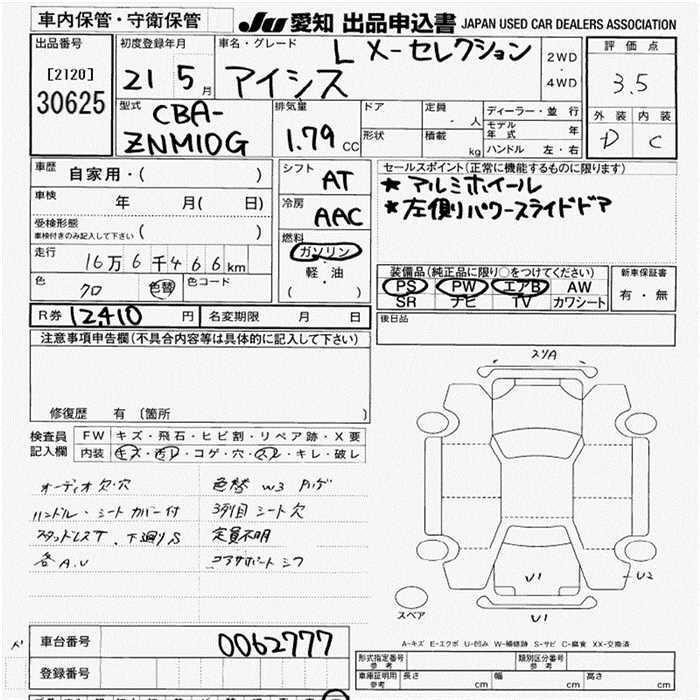 車内保管・守衛保管
JU 愛知 出品申込書 JAPAN USED CAR DEALERS ASSOCIATION
出品番号
[2120]
30625
初度登録年月
21 5月
車名・グレード
L X-セレクション
アイシス
2WD
・
4WD
評価点
3.5
外装 内装
D C
型式
CBA-
ZNM10G
排気量
1.79 CC
ドア
形状
定員
・ 人
積載
kg
ディーラー・並行
モデル年式 年
ハンドル 左・右
車歴
自家用・( )
車検
年 月( 日)
受検形態
車検付きのみ記入して下さい ( )
走行
16万6千466km
色
クロ
色替
色コード
シフト
AT
冷房
AAC
燃料
ガソリン
・
軽・油
( )
セールスポイント(正常に機能するものに限ります)
★アルミホイール
★左側リパワースライドドア
装備品(純正品に限り○をつけてください)
PS PW エアB AW
SR ナビ TV カワシート
新車保証書
有・無
R券 12,410 円
名変期限 月 日
後日品
注意事項申告欄(不具合内容等は具体的に記入して下さい)
修復歴 有 (箇所 )
検査員
記入欄
FW キズ・飛石・ヒビ割・リペア跡・X要
内装 キズ・汚レ・コゲ・穴・スレ・キレ・破レ
オーディオ欠・穴
色替 W3 ハゲ
ハンドル・シートカバー付
3列目シート欠
スタッドレスT、下廻りS
定員不明
各A.U
コアサポートシフ
スリA
U1
U2
U1
スペア
A-キズ E-エクボ U-凹み W-補修跡 S-サビ C-腐食 XX-交換済
車台番号
0062777
登録番号
形式指定番号
参考
類別区分番号
参考
車庫証明用
参考
長さ cm
幅 cm
高さ cm